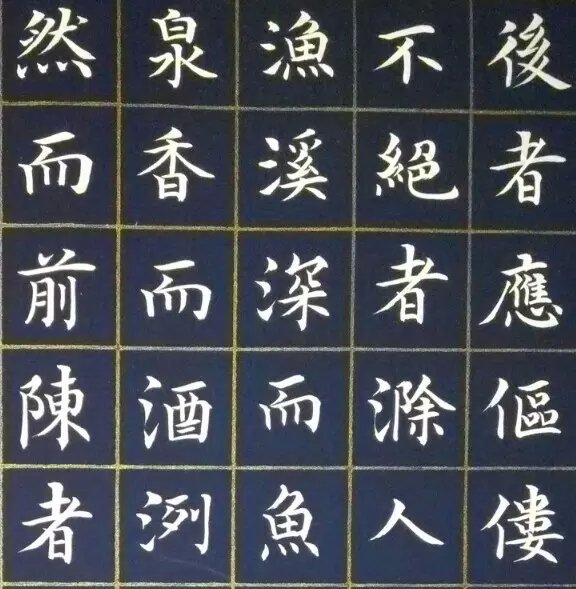 後者應傴僂
不絶者滁人
漁溪深而魚
泉香而酒洌
然而前陳者